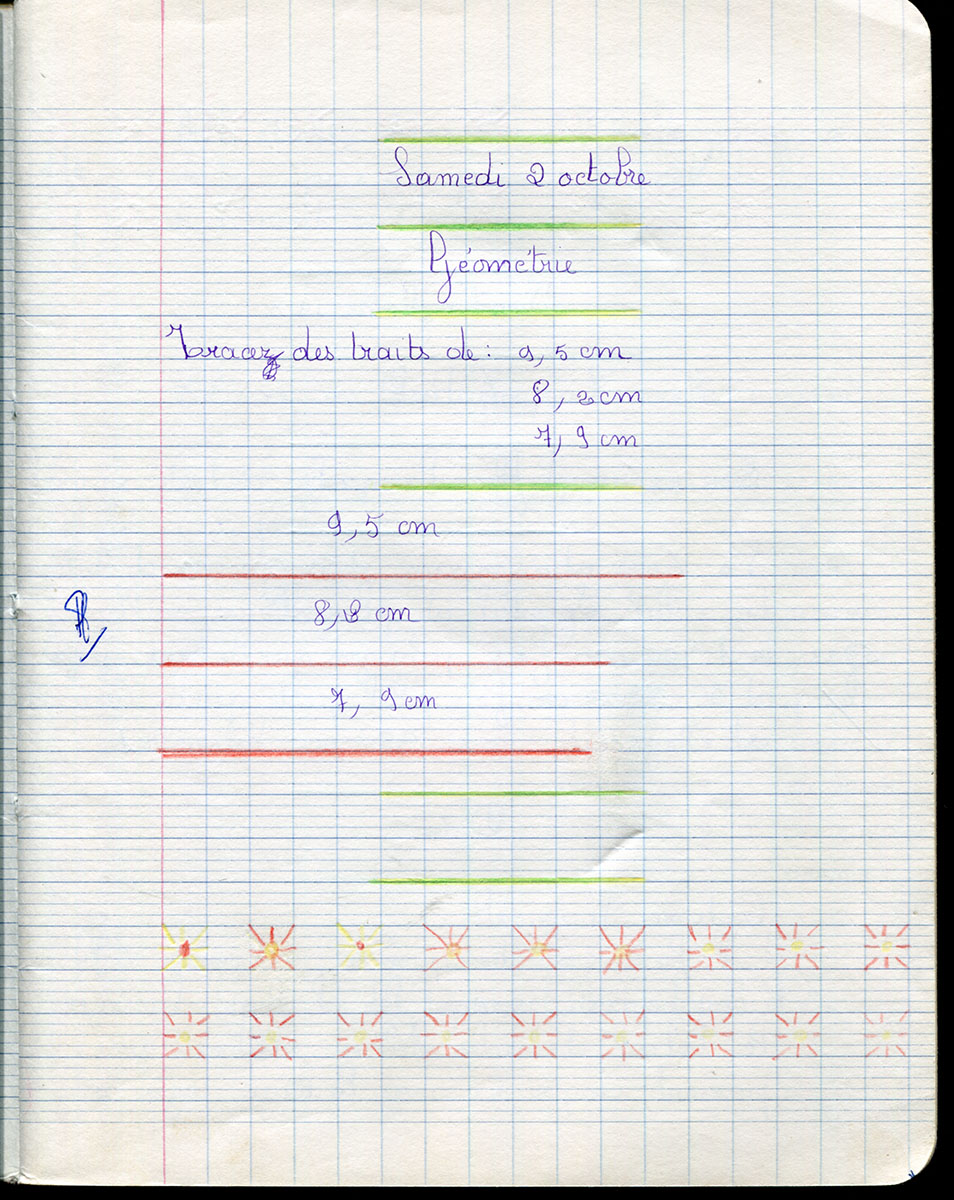 Samedi 2 octobre
Géométrie
Tracez des traits de : 9,5 cm
8,2 cm
7,9 cm
9,5 cm
8,2 cm
7,9 cm